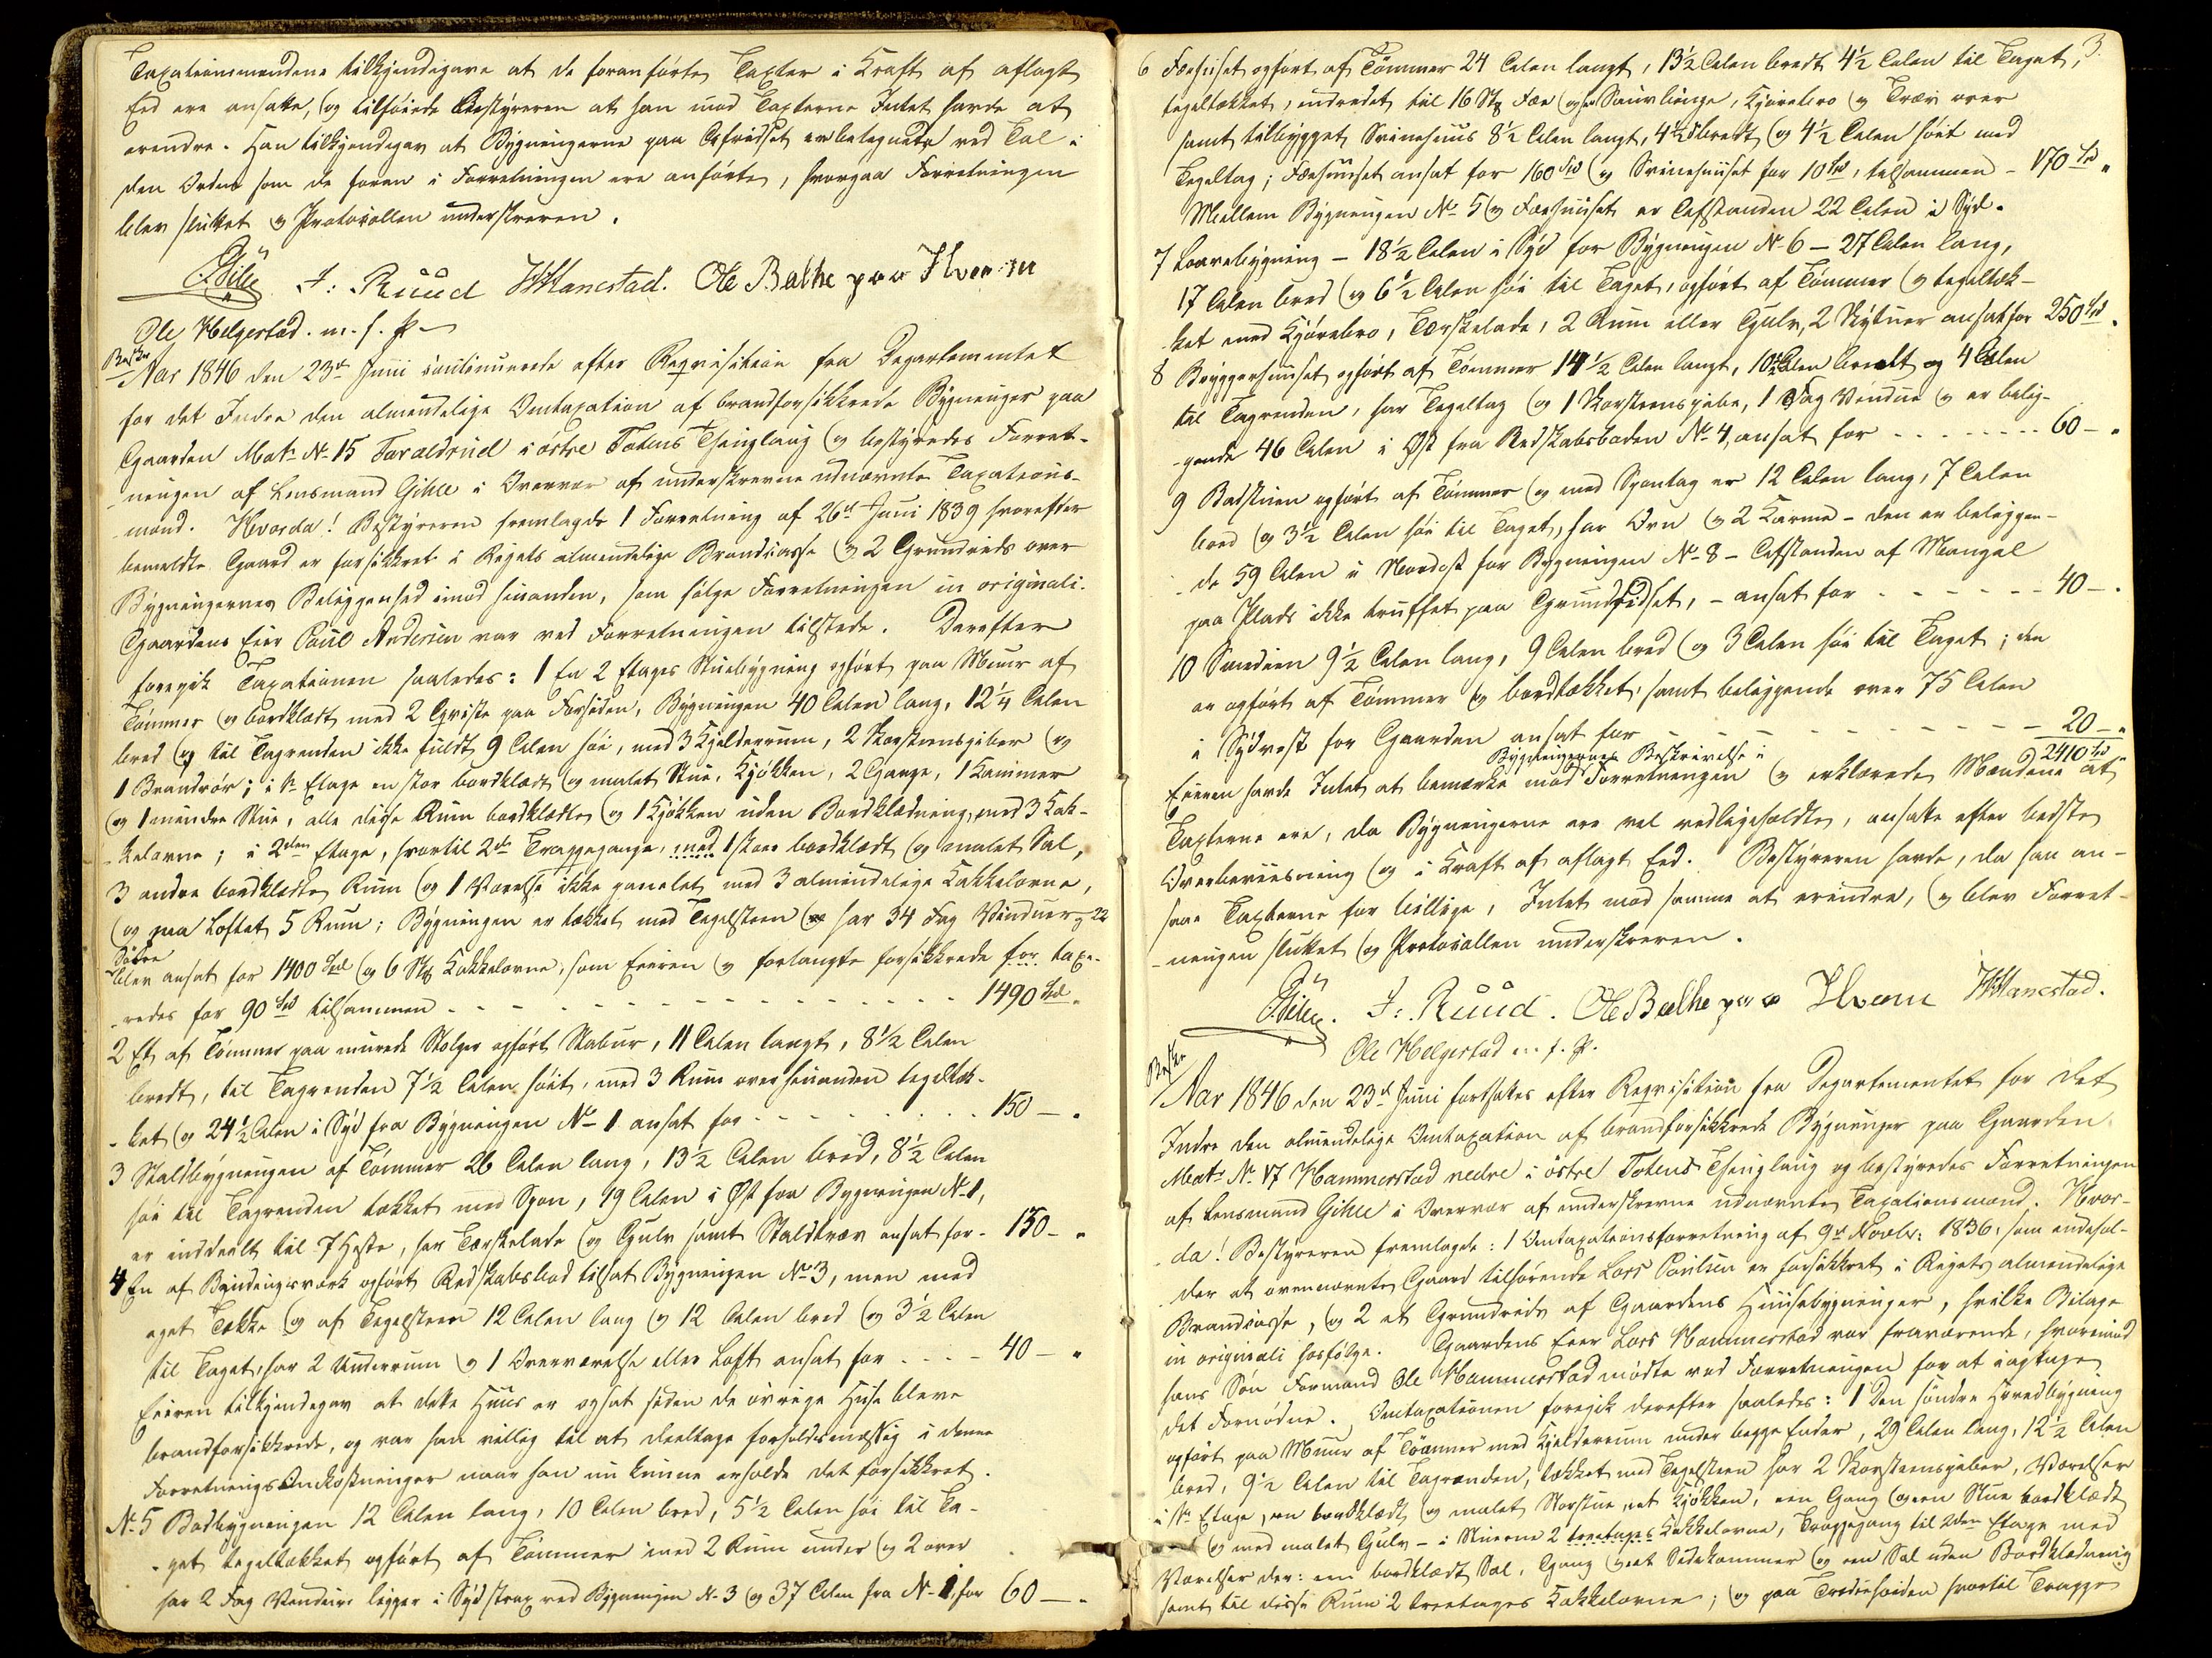 Taxationsmændene tilkjendegave at de foranførte Taxter i Kraft af aflagt
Eed ere ansatte, og tilføiede Bestyreren at han mod Taxterne Intet havde at
erendre. Han tilkjendegav at Bygningerne paa Afridset er betegnete ved Tal i
den Orden som de foran i Forretningen ere anførte, hvorpaa Forretningen
blev sluttet og Protocollen underskreven.
Gihle J: Ruud Hanestad. Ole Bælhe paa Hveem
Ole Helgestad. m. f. P.
Aar 1846 den 23de Juni continuerede efter Reqvisition fra Departementet
for det Indre den almindelige Omtaxation af brandforsikkrede Bygninger paa
Gaarden Matr No 15 Faraldrud i østre Totens Thinglaug og bestyredes Forret-
ningen af Lensmand Gihle i Overvær af underskrevne udnævnte Taxations-
mænd. Hvorda! Bestyreren fremlagde 1 Forretning af 26de Juni 1839 hvorefter
bemeldte Gaard er forsikkret i Rigets almindelige Brandcasse og 2 Grundrids over
Bygningernes Beliggenhed imod hinanden, som følge Forretningen in originali.
Gaardens Eier Poul Andersen var ved Forretningen tilstede. Derefter
foregik Taxationen saaledes: 1 En 2 Etages Stuebygning opført paa Muur af
Tømmer og bordklædt med 2 Qviste paa Forsiden, Bygningen 40 Alen lang, 12 1/4 Alen
bred og til Tagrenden ikke fuldt 9 Alen høi, med 3 Kjelderrum, 2 Skorsteenspiber og
1 Brandrør; i 1ste Etage en stor bordklædt og malet Stue, Kjøkken, 2 Gange, 1 Kammer
og 1 mindre Stue, alle disse Rum bordklædte og 1 Kjøkken uden Bordklædning, med 3 Kak-
kelovne; i 2den Etage, hvortil 2de Trappegange, med 1 stor bordklædt og malet Sal,
3 andre bordklædte Rum og 1 Værelse ikke panelet med 3 almindelige Kakkelovne,
og paa Loftet 5 Rum; Bygningen er tækket med Tegelsteen har 34 Fag Vinduer og 22
Dørre
blev ansat for 1400 Spd og 6 Stk Kakkelovne, som Eieren forlangte forsikkrede for taxe-
redes for 90 Spd tilsammen - - - 1490 Spd.
2 Et af Tømmer paa murede Stolper opført Stabur, 11 Alen langt, 8 1/2 Alen
bredt, til Tagrenden 7 1/2 Alen høit, med 3 Rum over hinanden tegeltæk-
ket og 24 1/2 Alen i Syd fra Bygningen No 1 ansat for - - - 150 - "
3 Staldbygningen af Tømmer 26 Alen lang, 13 1/2 Alen bred, 8 1/2 Alen
høi til Tagrenden tækket med Spon, 19 Alen i Øst fra Bygningen No 1,
er inddeelt til 7 Heste, har Tærskelade og Gulv samt Staldtræv ansat for - 150 - "
4 En af Bindingsværk opført Redskabsbod tilsat Bygningen No 3, men med
eget Tække og af Tegelsteen 12 Alen lang og 12 Alen bred og 3 1/2 Alen
til Taget, har 2 Underrum og 1 Overværelse eller Loft ansat for - - - 40 - "
Eieren tilkjendegav at dette Huus er opsat siden de øvrige Huse bleve
brandforsikkrede, og var han villig til at deeltage forholdsmæssig i denne
Forretnings Omkostninger naar han nu kunne erholde det forsikkret.
No 5 Bodbygningen 12 Alen lang, 10 Alen bred, 5 1/2 Alen høi til Ta-
get tegeltækket opført af Tømmer med 2 Rum under og 2 over
har 2 Fag Vinduer ligger i Syd strax ved Bygningen No 3 og 37 Alen fra No 1, for 60 - "
3.
6 Fæhuset opført af Tømmer 24 Alen langt, 13 1/2 Alen bredt 4 1/2 Alen til Taget,
tegeltækket, indredet til 16 Stk Fæe og Sauebinge, Kjørebro og Træv over
samt tilbygget Svinehuus 8 1/2 Alen langt, 4 1/2 bredt og 4 1/2 Alen høit med
Tegeltag; Fæhuuset ansat for 160 Spd og Svinehuuset for 10 Spd, tilsammen - 170 Spd "
Mellem Bygningen No 5 og Fæehuuset er Afstanden 22 Alen i Syd.
7 Laavebygning - 18 1/2 Alen i Syd for Bygningen No 6 - 27 Alen lang,
17 Alen bred og 6 1/2 Alen høi til Taget, opført af Tømmer og tegeltæk-
ket med Kjørebro, Tærskelade, 2 Rum eller Gulv, 2 Skytuer ansat for 250 Spd.
8 Bryggerhuuset opført af Tømmer 14 1/2 Alen langt, 10 1/2 Alen bredt og 4 Alen
til Tagrenden, har Tegeltag og 1 Skorsteenspibe, 1 Fag Vindue og er belig-
gende 46 Alen i Øst fra Redskabsboden No 4, ansat for - - - 60 - "
9 Badstuen opført af Tømmer og med Spontag er 12 Alen lang, 7 Alen
bred og 3 1/2 Alen høi til Taget, har Ovn og 2 Karme - den er beliggen-
de 59 Alen i Nordost for Bygningen No 8 - Afstanden af Mangel
paa Plads ikke truffet paa Grundridset, - ansat for - - - 40 - .
10 Smedien 9 1/2 Alen lang, 9 Alen bred og 3 Alen høi til Taget; den
er opført af Tømmer og bordtækket, samt beliggende over 75 Alen
i Sydvest for Gaarden ansat for - - - 20 - "
2410 Spd
Bygningernes Beskrivelse i
Eieren havde Intet at bemærke mod Forretningen og erklærede Mændene at
Taxterne ere, da Bygningerne ere vel vedligeholdte, ansatte efter bedste
Overbeviisning og i Kraft af aflagt Eed. Bestyreren havde, da han an-
saae Taxterne for billige, Intet mod samme at erindre, og blev Forret-
ningen sluttet og Protocollen underskreven.
Gihle. J: Ruud. Ole Bælhe paa Hveem Hanestad.
Ole Helgestad m. f. P.
Aar 1846 den 23de Juni fortsattes efter Reqvisition fra Departementet for det
Indre den almindelige Omtaxation af brandforsikkrede Bygninger paa Gaarden
Matr No 17 Hammerstad nedre i østre Totens Thinglaug og bestyredes Forretningen
af Lensmand Gihle i Overvær af underskrevne udnævnte Taxationsmænd. Hvor-
da! Bestyreren fremlagde: 1 Omtaxationsforretning af 9de Novbr: 1836, som indehol-
der at ovennævnte Gaard tilhørende Lars Poulsen er forsikkret i Rigets almindelige
Brandcasse, og 2 et Grundrids af Gaardens Huusebygninger, hvilke Bilage
in originali hosfølge. Gaardens Eier Lars Hammerstad var fraværende, hvorimod
hans Søn Formand Ole Hammerstad mødte ved Forretningen for at iagttage
det Fornødne. Omtaxationen foregik derefter saaledes: 1 Den søndre Hovedbygning
opført paa Muur af Tømmer med Kjelderrum under begge Ender, 29 Alen lang, 12 1/2 Alen
bred, 9 1/2 Alen til Tagrenden, tækket med Tegelsteen har 2 Skorsteenspiber, Værelser
i 1ste Etage, een bordklædt og malet Storstue, et Kjøkken, een Gang og een Stue bordklædt
og med malet Gulv - i Stuerne 2 treetages Kakkelovne, Trappegang til 2den Etage med
Værelser der: een bordklædt Sal, Gang og et Sidekammer og een Sal uden Bordklædning
samt til disse Rum 2 treetages Kakkelovne; og paa Trediehøiden hvortil Trappe